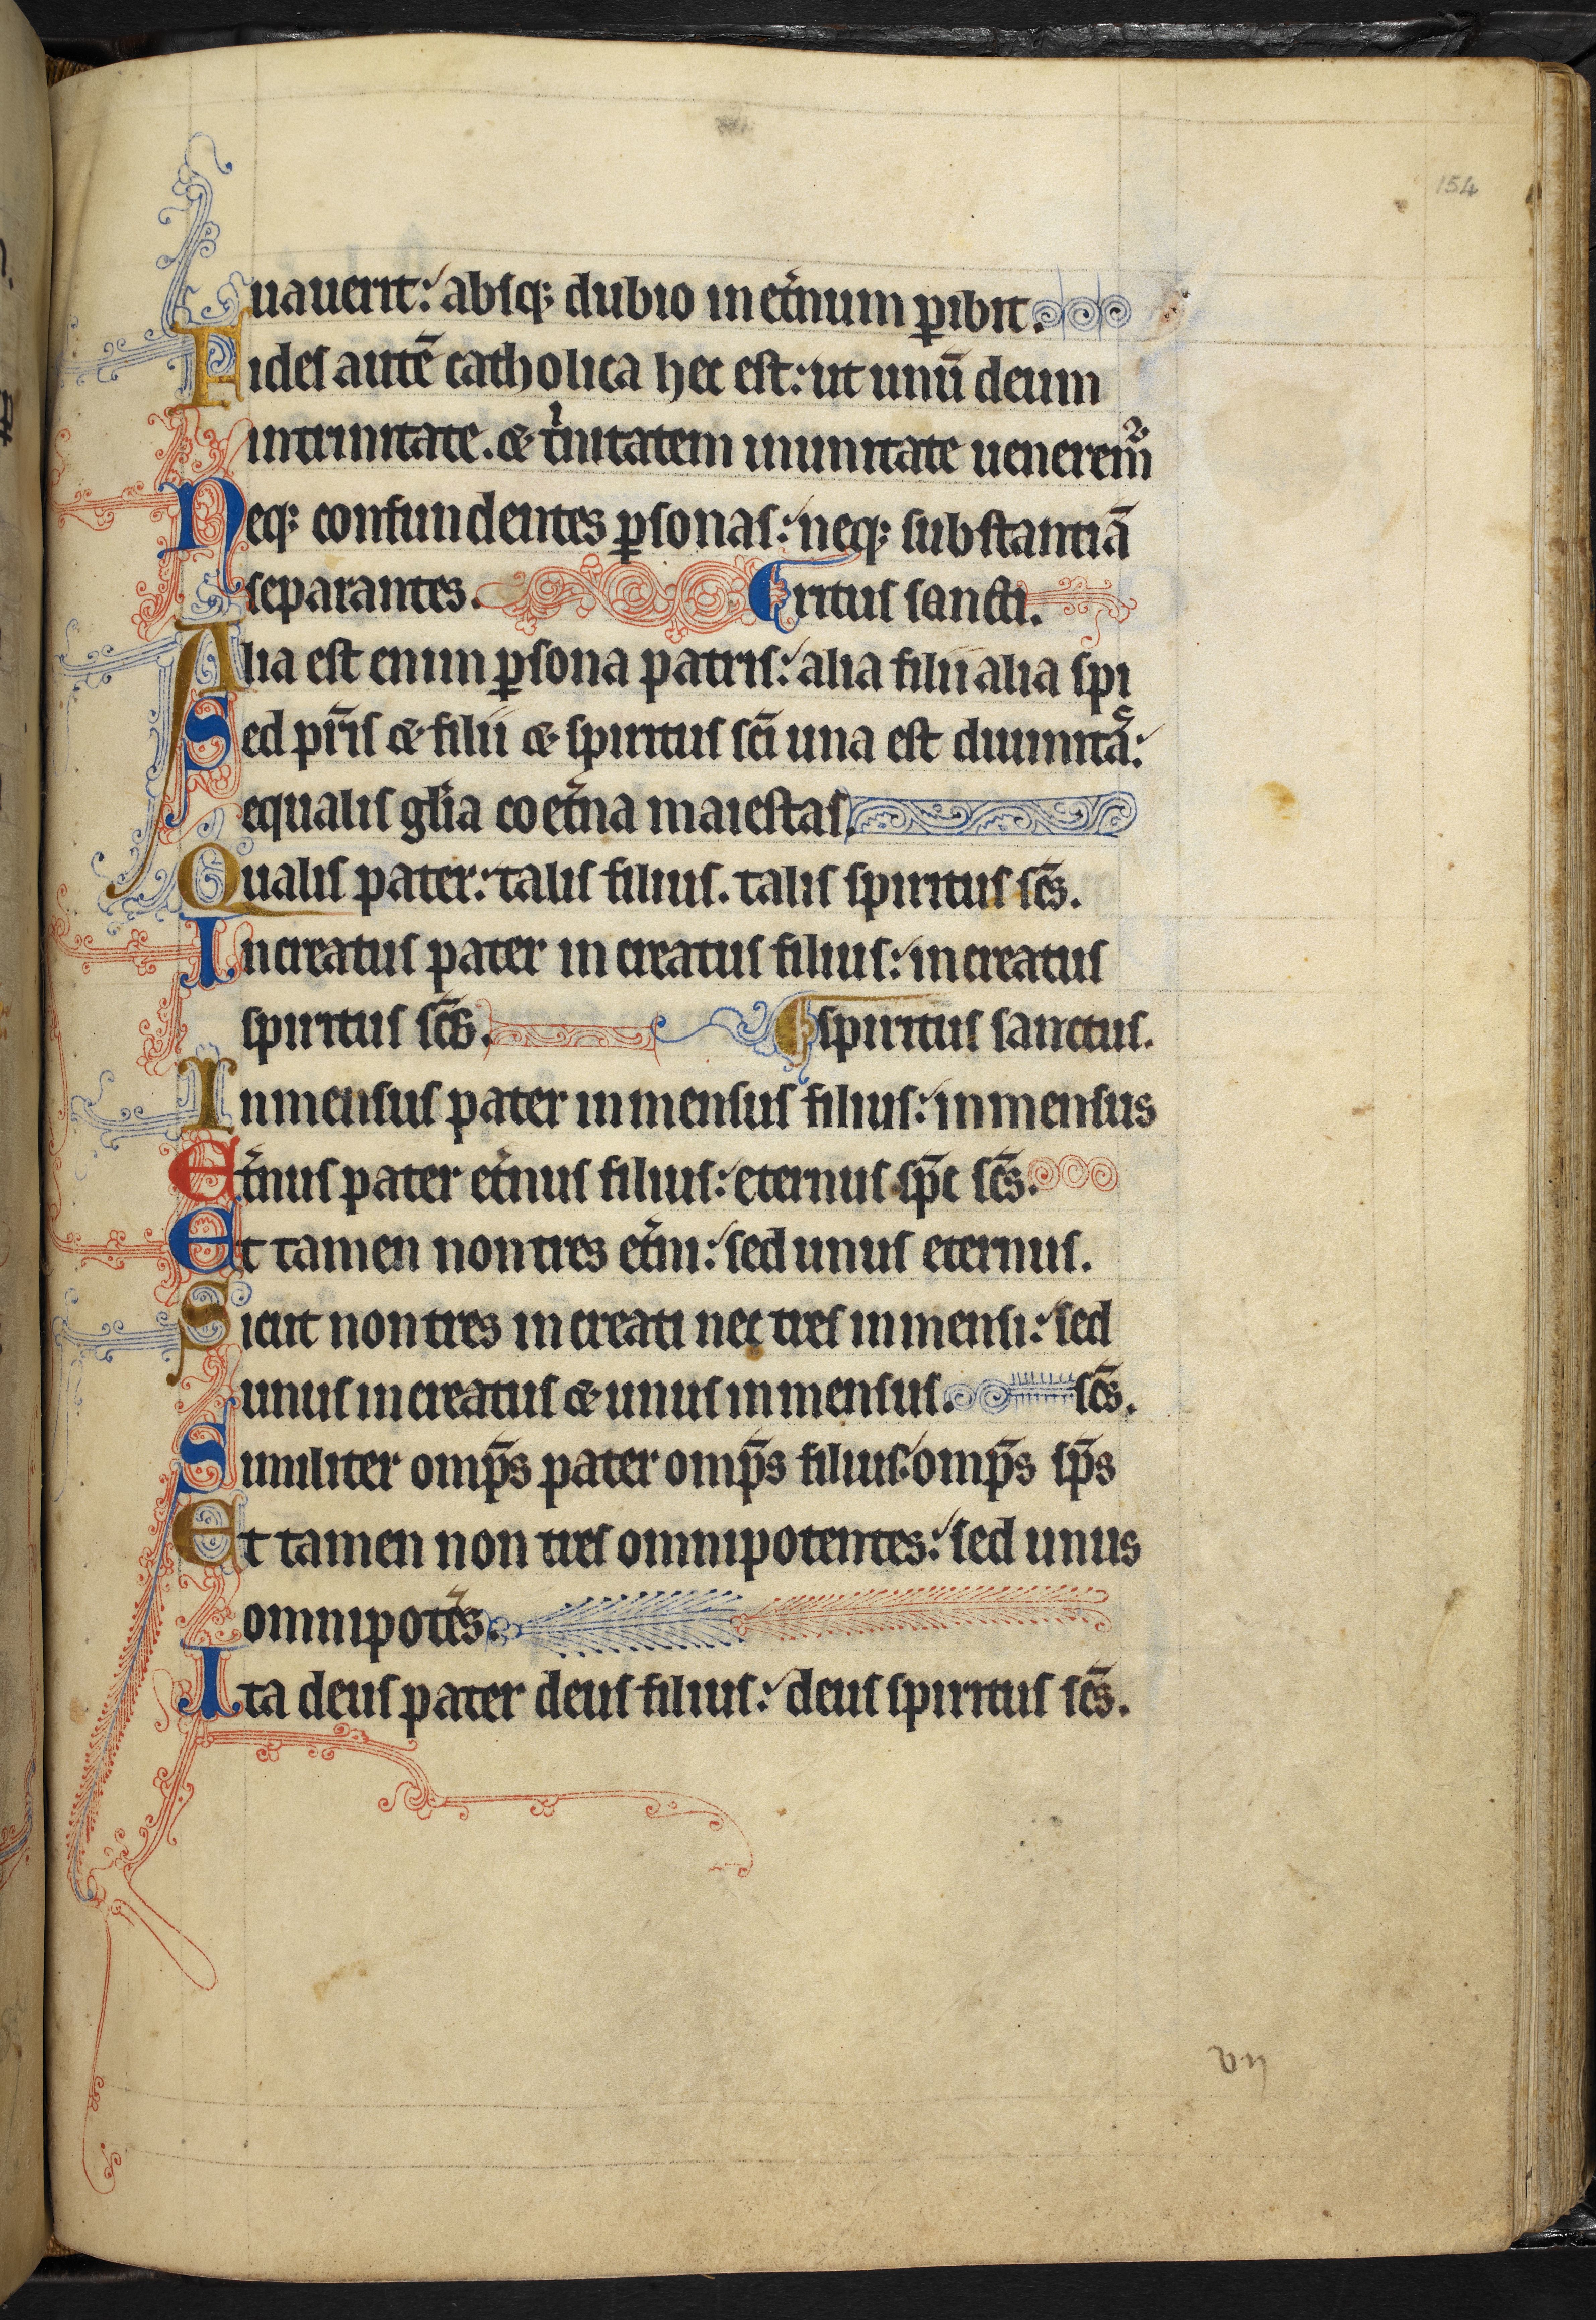 154
uauerit: absq; dubio in et̉num ꝑibit.
Fides autē catholica hec est: ut unū deum
in trinitate. & t̉nitatem in unitate uenerem᷑
Neq; confundentes ꝑsonas: neq; substantiā
separantes. ¶ritus sancti.
Alia est enim ꝑsona patris: alia filii alia spi
Sed pr̄is & filii & spiritus sc̄i una est diuinitas:
equalis gl̉ia coet̉na maiestas.
Qualis pater: talis filius. talis spiritus sc̄s.
Increatus pater increatus filius: increatus
spiritus sc̄s. ¶spiritus sanctus.
Inmensus pater inmensus filius: inmensus
Et̉nus pater et̉nus filius: eternus sp̄c sc̄s.
Et tamen non tres et̉ni: sed unus eternus.
Sicut non tres increati nec tres inmensi: sed
unus increatus & unus inmensus. sc̄s.
Similiter omp̄s pater omp̄s filius: omp̄s sp̄s
Et tamen non tres omnipotentes: sed unus
omnipotēs.
Ita deus pater deus filius: deus spiritus sc̄s.